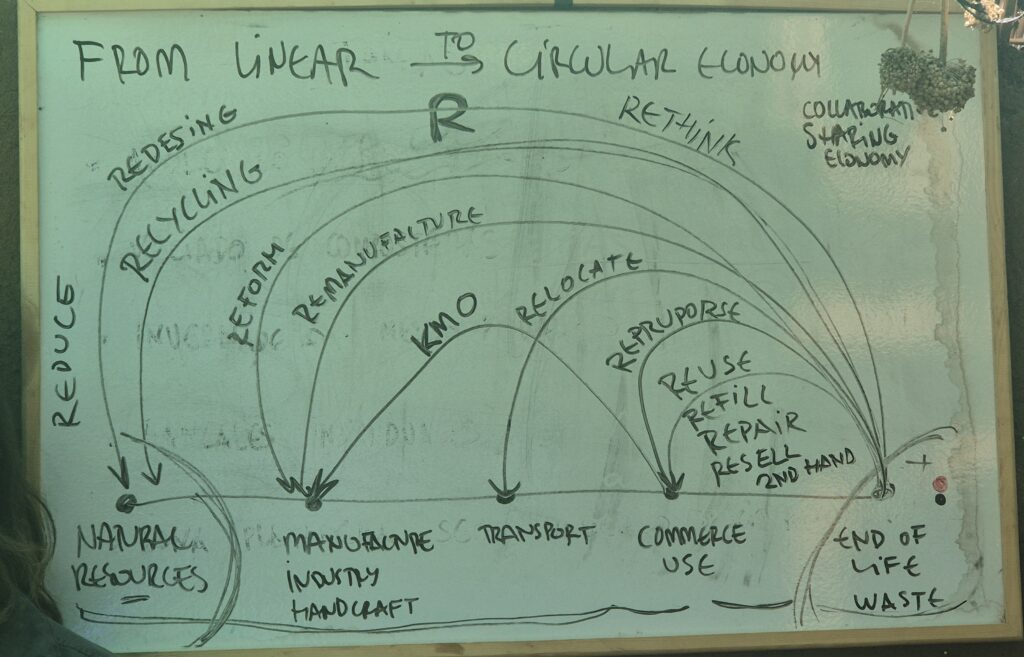 FROM LINEAR TO CIRCULAR ECONOMY
R
RETHINK
COLLABORATIVE
SHARING
ECONOMY
REDESING
RECYCLING
REDUCE
REFORM
REMANUFACTURE
KMO
RELOCATE
REPRUPORSE
REUSE
REFILL
REPAIR
RESELL
2ND HAND
+
NATURAL
RESOURCES
MANUFACTURE
INDUSTRY
HANDCRAFT
TRANSPORT
COMMERCE
USE
END OF
LIFE
WASTE